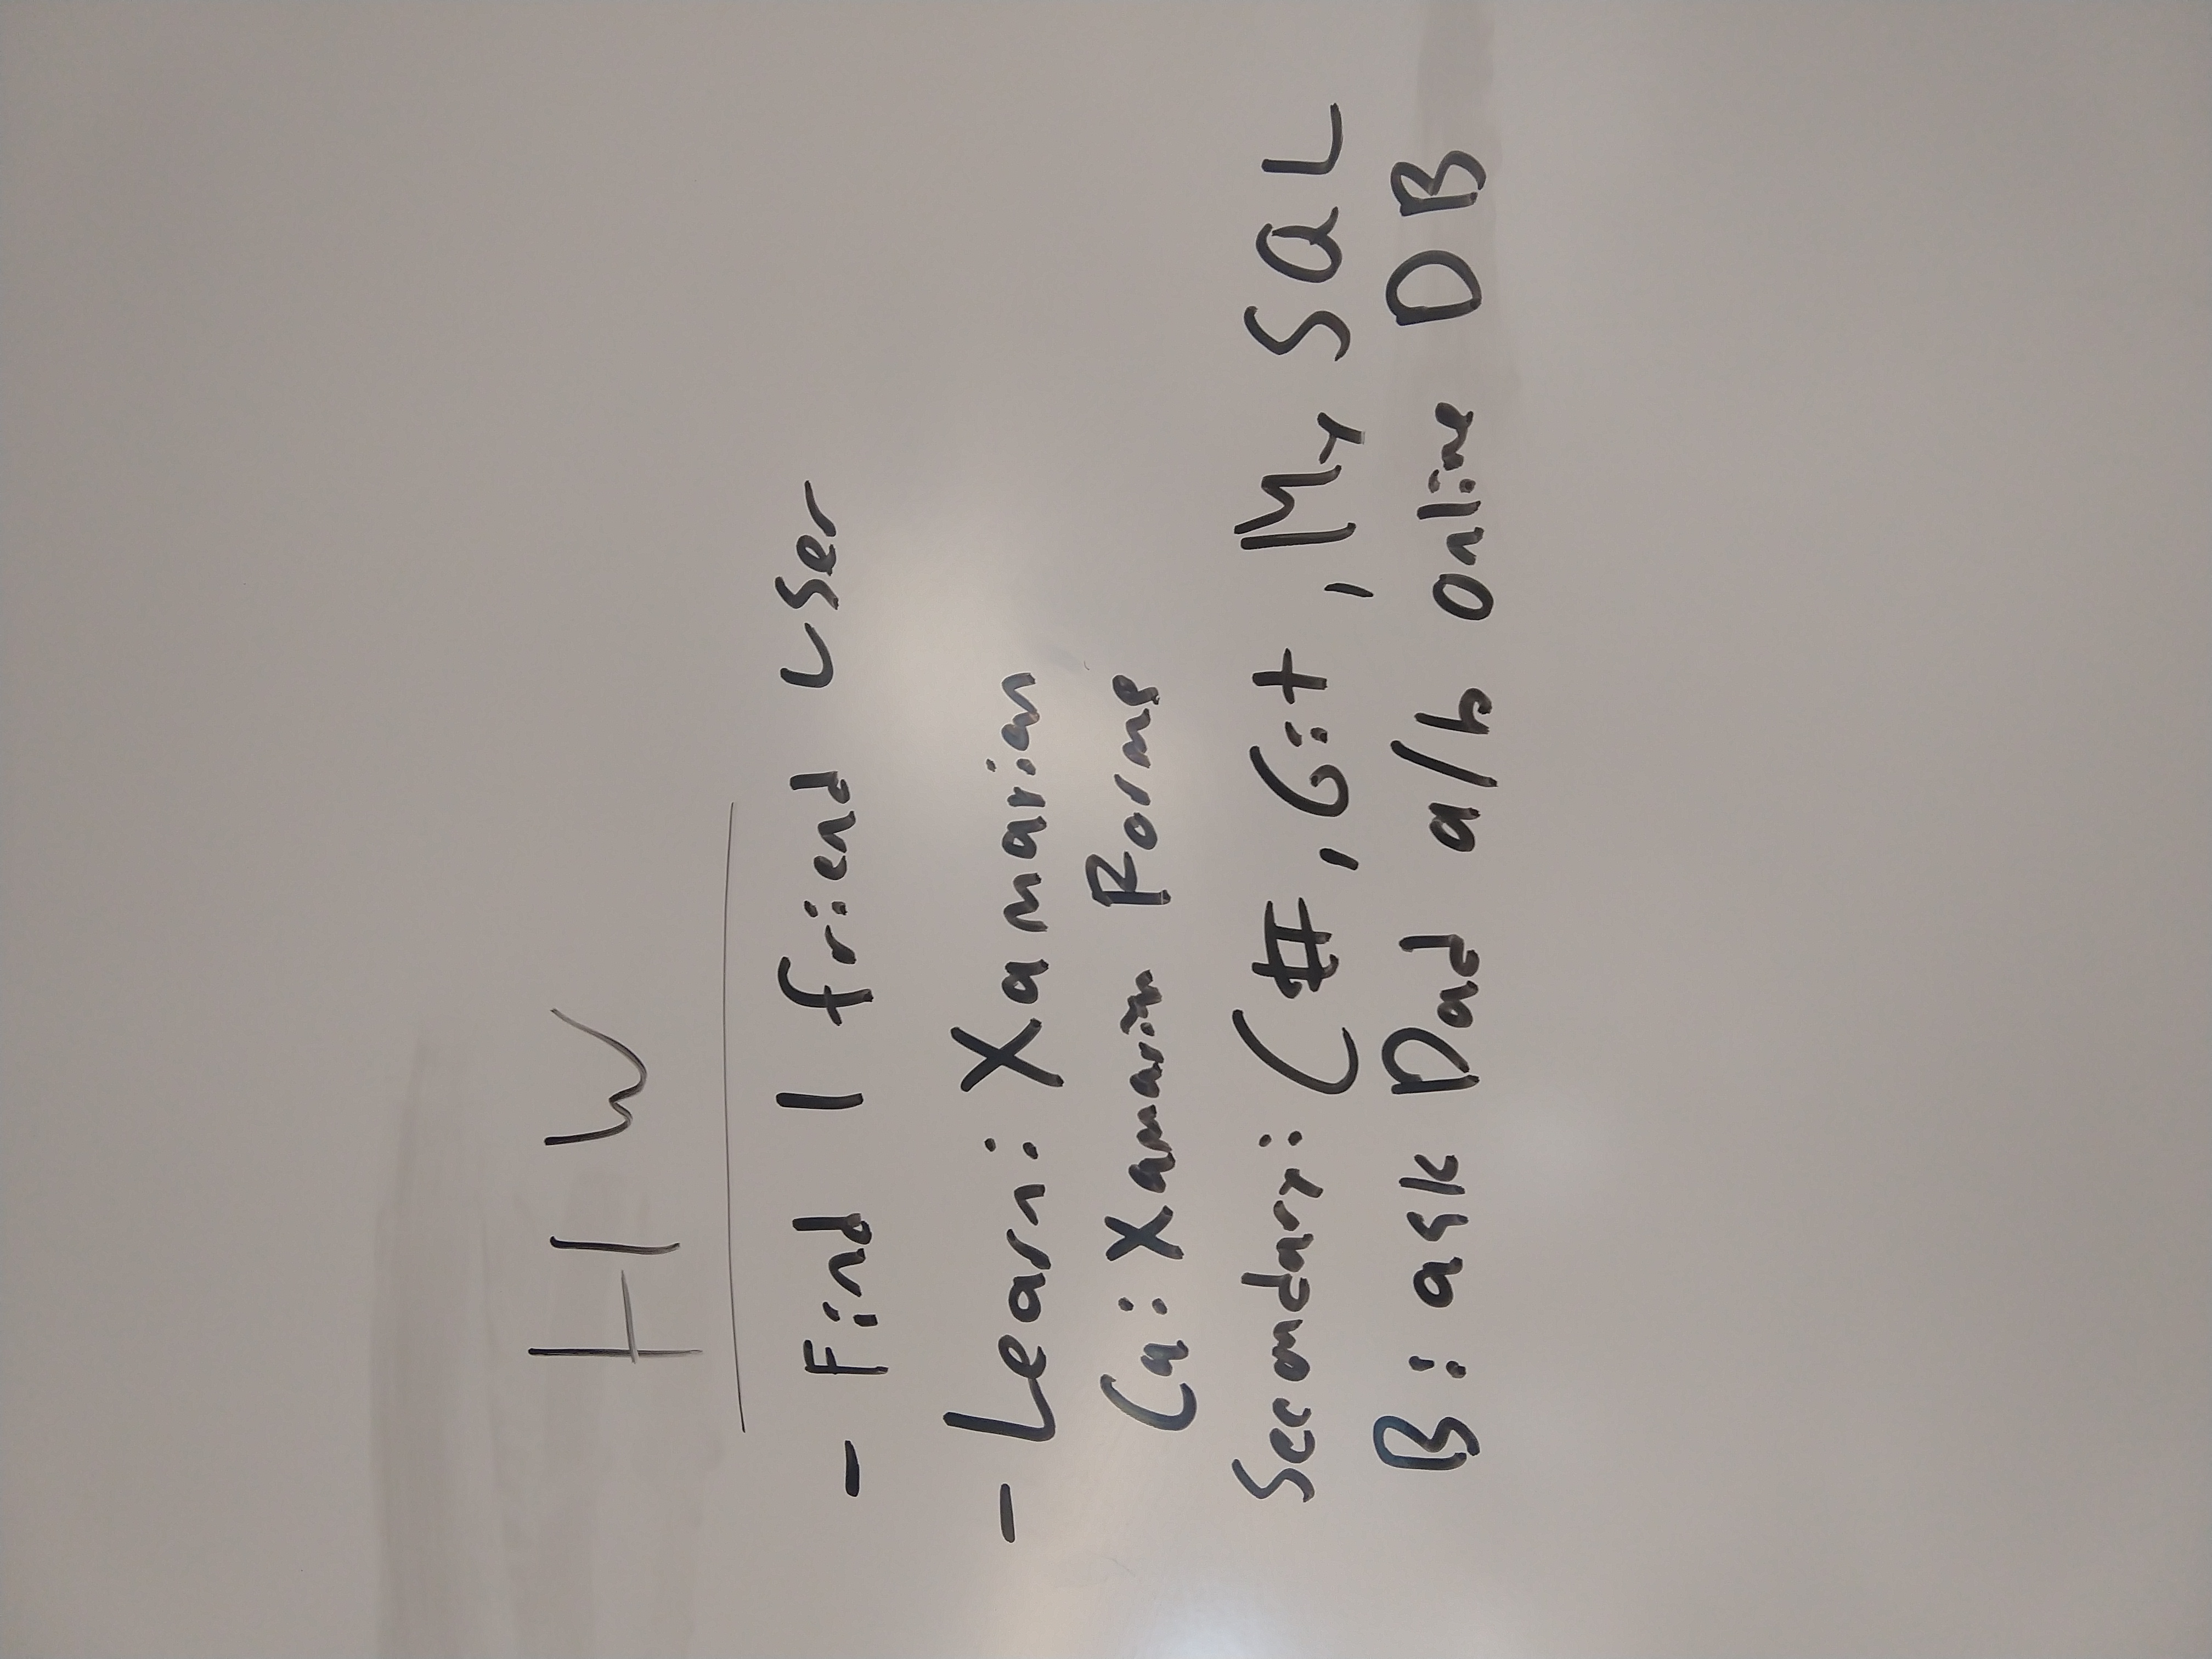 HW
- Find 1 friend user
- Learn: Xamarian
Ca: Xamarin Forms
Secondary: C#, Git, My SQL
B: ask Dad a/b online DB